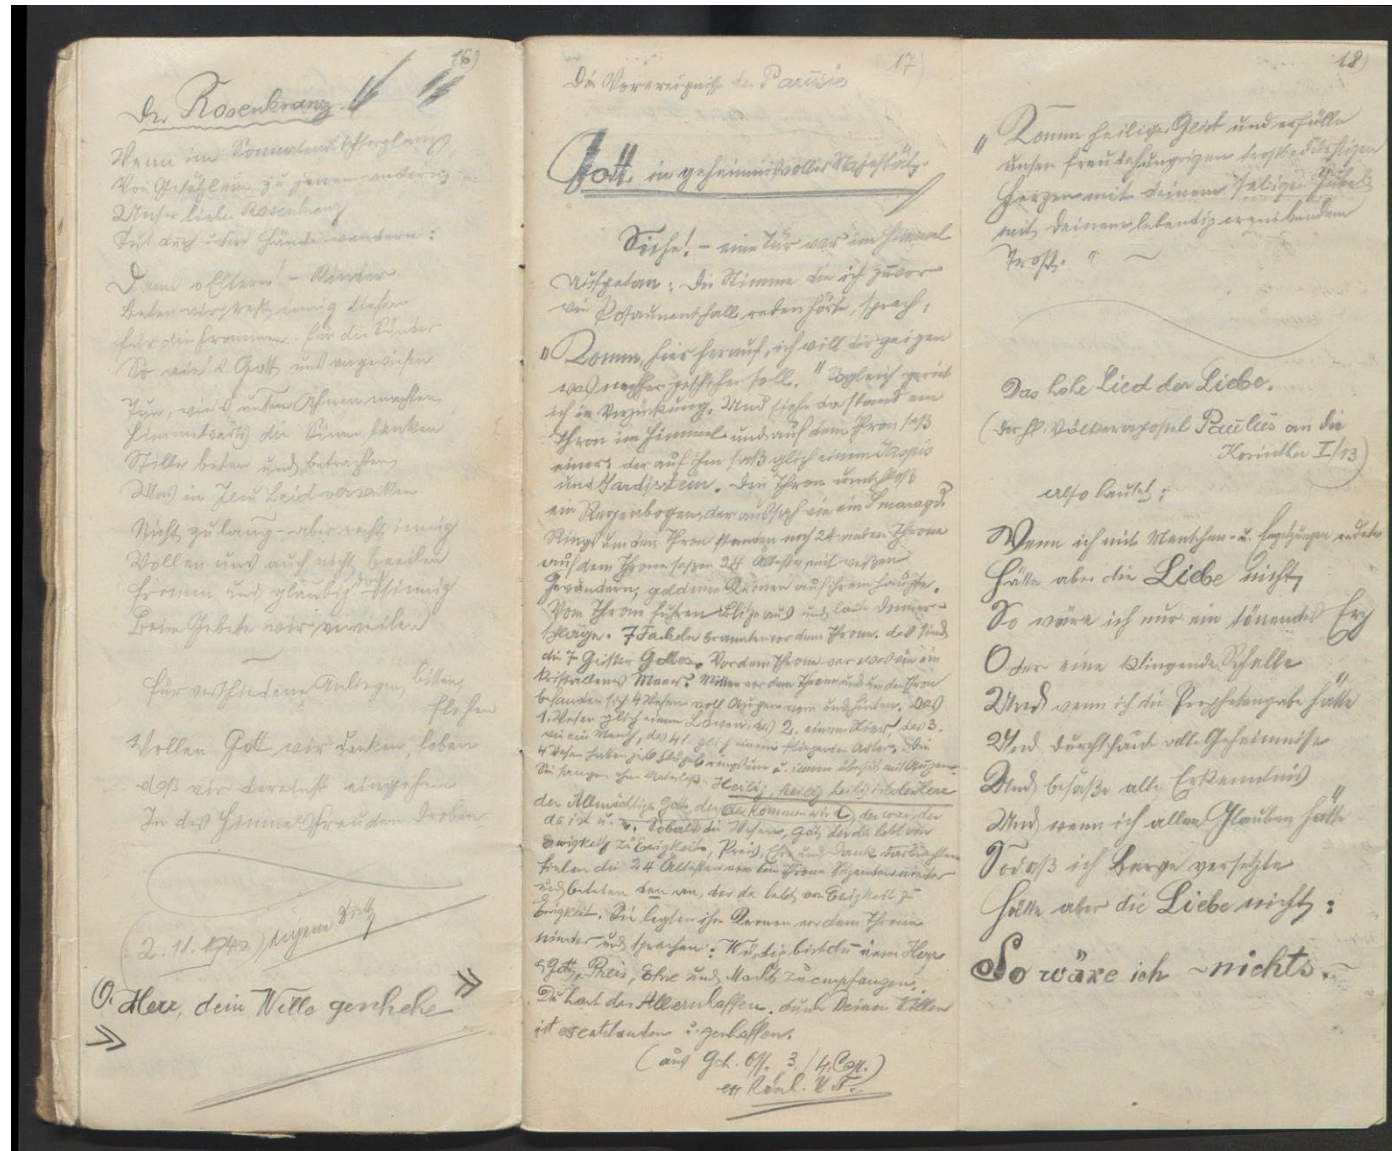 16)
Der Rosenkranz.
Wenn im
Von zu jenem andern
Unser lieber Rosenkranz
Tut durch unsre Hände wandern:
Dann o Eltern! – Kinder
Beten wir recht innig
für die Frommen, für die Sünder
So wie's Gott uns angewiesen
Tun, wie's unsre Ahnen machten
Himmelwärts die Sinne lenken
Stille beten und betrachten,
Uns in Jesu Leid versenken
Nicht zu lang – aber recht innig
Wollen uns auch nicht beeilen
Fromm und gläubig, doch
Beim Gebete wir verweilen
für verschiedene Anliegen, bitten,
flehen
Wollen Gott wir danken, loben
daß wir dereinst eingehen
In des Himmels Freuden droben
(2.11.1940) eigene
O. Herr, dein Wille geschehe
17)
Die Vorereignisse der Parusie
Gott in geheimnisvoller Majestät.
Siehe! – eine Tür war im Himmel
Aufgetan: Die Stimme die ich zuvor
wie Posaunenschall reden hörte, sprach,
"Komm, hier herauf, ich will dir zeigen
was nachher geschehen soll." Sogleich geriet
ich in Verzückung. Und siehe da stand ein
Thron im Himmel und auf dem Thron saß
einer; der auf ihm saß glich einem Jaspis
und Sardisstein. Den Thron umschloß
ein Regenbogen, der aussah wie ein Smaragd.
Rings um den Thron standen noch 24 andere Throne
auf dem Throne saßen 24 Älteste mit weißen
Gewändern, goldene Kronen auf ihrem Haupte.
Vom Throne fuhren Blitze aus und laute Donner-
schläge. 7 Fackeln brannten vor dem Throne. das sind
die 7 Geister Gottes. Vor dem Throne war es wie ein
kristallenes Meer. Mitten vor dem Throne und um den Thron
befanden sich 4 Wesen voll Augen vorn und hinten. Das
1. Wesen glich einem Löwen, das 2. einem Stier, das 3.
wie ein Mensch, das 4t. glich einem fliegenden Adler. Die
4 Wesen hatten je 6 Flügel ringsum u. innen übersät mit Augen.
Sie sangen ohne Unterlaß: Heilig, heilig heilig ist der Herr
der Allmächtige Gott, der da kommen wird, der war, der
da ist u. Sobald die Wesen, Gott der da lebt von
Ewigkeit zu Ewigkeit, Preis, Ehre und Dank darbrachten
fielen die 24 Ältesten vor dem Throne nieder
und beteten den an, der da lebt von Ewigkeit zu
Ewigkeit. Sie legten ihre Kronen vor dem Throne
nieder und sprachen: Würdig bist du unser Herr
& Gott, Preis, Ehre und Macht zu empfangen.
Du hast das All erschaffen. durch Deinen Willen
ist es entstanden u. geschaffen.
(aus Geh. Off. 3./4. Cap.)
18)
"Komm heiliger Geist und erfülle
unsere freudehungrigen trostbedürftigen
Herzen mit deinem seligen Jubel
mit deinem lebendig
Trost. "
Das hohe Lied der Liebe.
(der hl. Völkerapostel Paulus an die
Korinther I/13)
also lautet:
Wenn ich mit Menschen- u. Engelzungen redete
Hätte aber die Liebe nicht,
So wäre ich nur ein tönendes Erz
Oder eine klingende Schelle
Und wenn ich die Prophetengabe hätte
Und durchschaute alle Geheimnisse
Und besäße alle Erkenntnis
Und wenn ich allen Glauben hätte
Sodaß ich Berge versetzte
Hätte aber die Liebe nicht:
So wäre ich – nichts. –